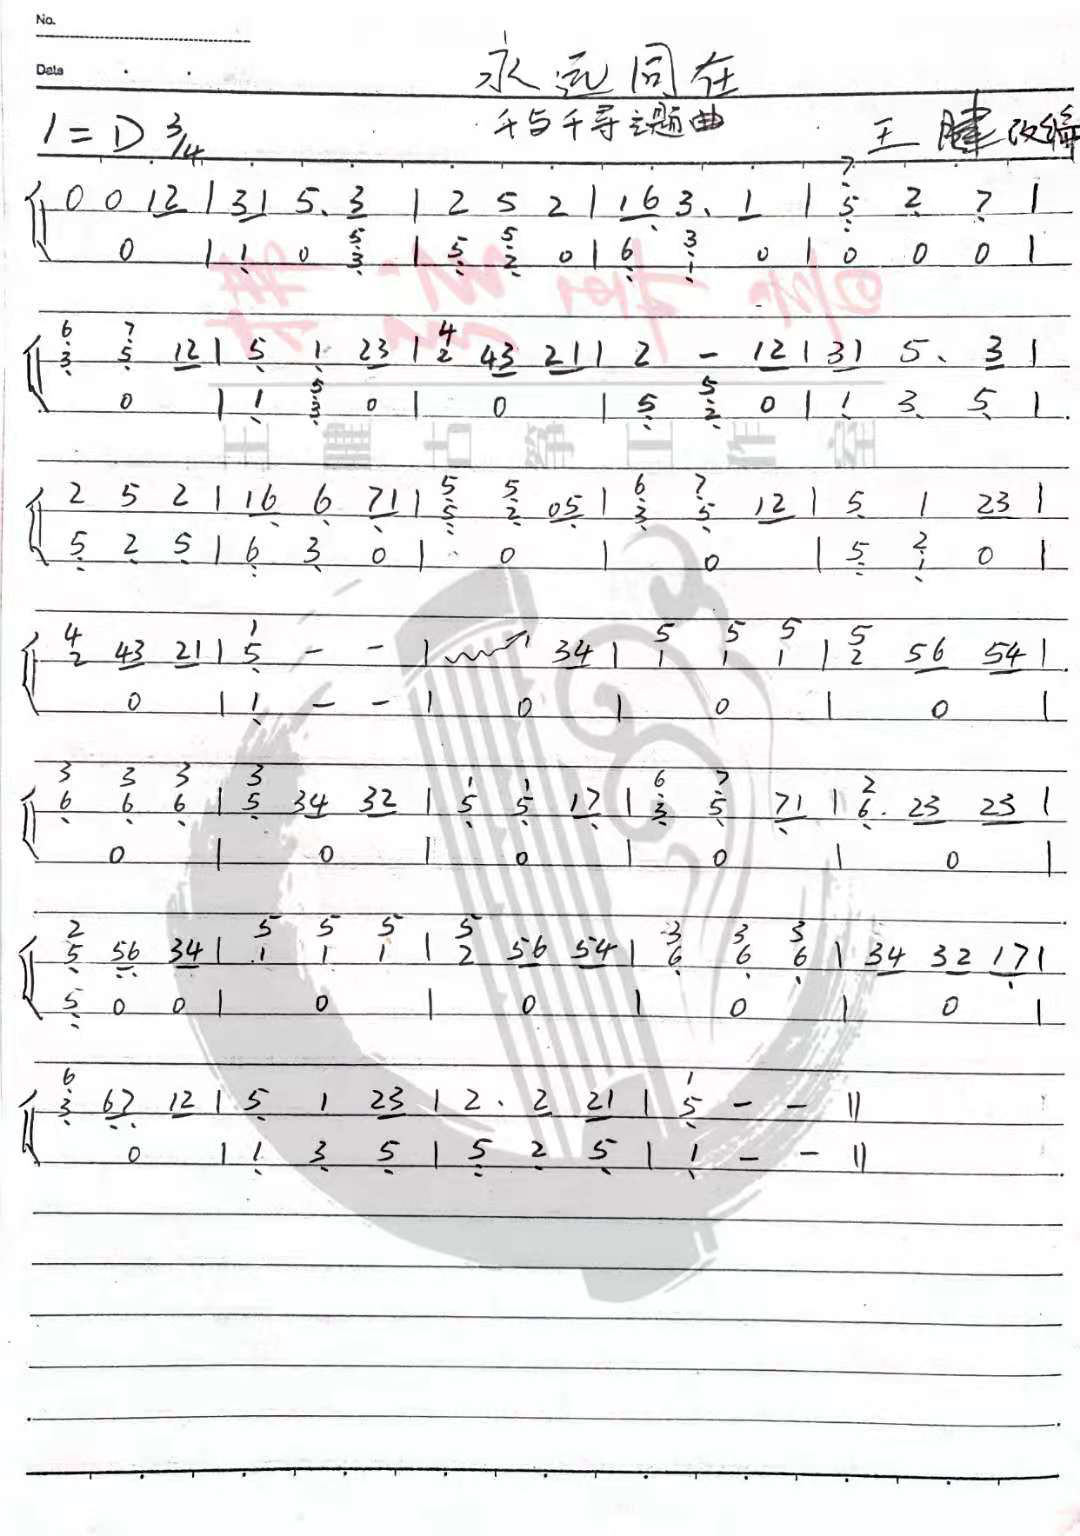 No.
Date
永远同在
千与千寻主题曲
1 = D 3/4
王 改编
0 0 12 | 31 5. 3 | 2 5 2 | 16 3. 1 | 5 2 7 |
0 | 1 0 3 | 5 2 0 | 6 1 0 | 0 0 0 |
3 5 12 | 5 1 23 | 2 43 21 | 2 - 12 | 31 5. 3 |
0 | 1 3 0 | 0 | 5 2 0 | 1 3 5 |
2 5 2 | 16 6 71 | 5 2 05 | 3 5 12 | 5 1 23 |
5 2 5 | 6 3 0 | 0 | 0 | 5 1 0 |
4
2 43 21 | 5 - - | 34 | 1 1 1 | 2 56 54 |
0 | 1 - - | 0 | 0 | 0 |
3 3 3 3 1 1 6 7 2
6 6 6 | 5 34 32 | 5 5 17 | 3 5 71 | 6. 23 23 |
0 | 0 | 0 | 0 | 0 |
2 5 5 5 5 3 3 3
5 56 34 | 1 1 1 | 2 56 54 | 6 6 6 | 34 32 17 |
5 0 0 | 0 | 0 | 0 | 0 |
6 1
3 67 12 | 5 1 23 | 2. 2 21 | 5 - - ||
0 | 1 3 5 | 5 2 5 | 1 - - ||